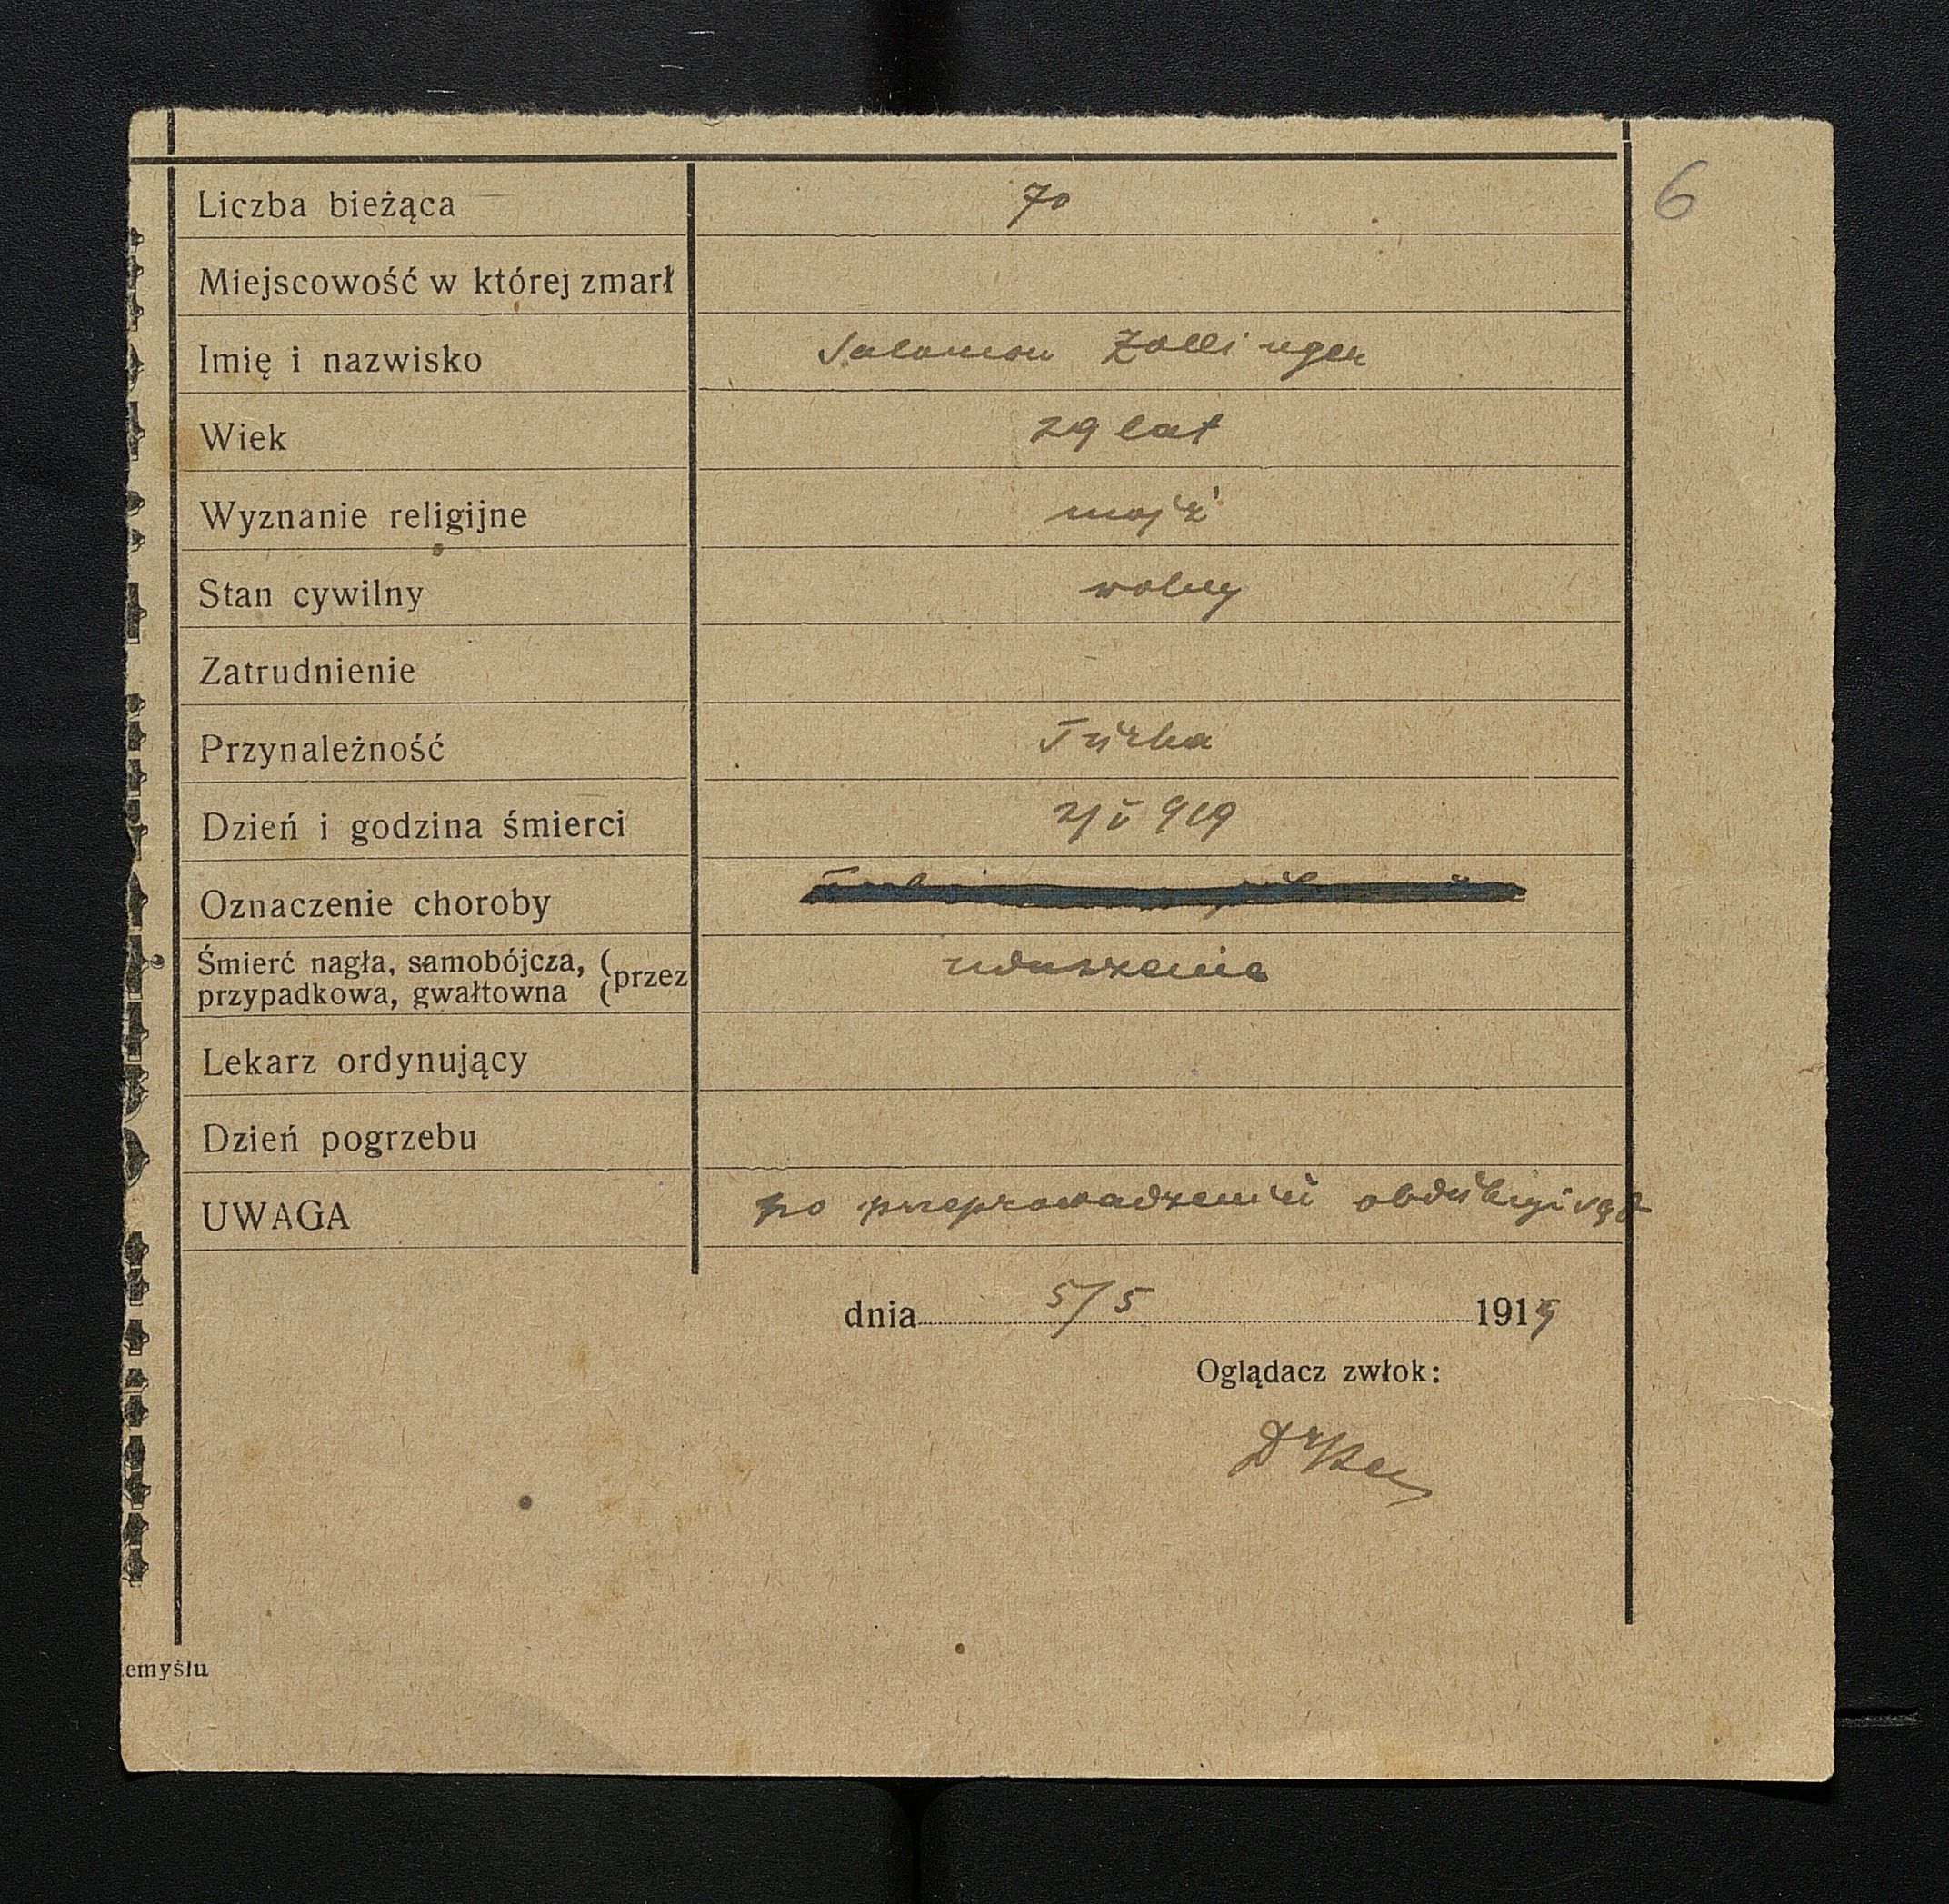 6
Liczba bieżąca 70
Miejscowość w której zmarł
Imię i nazwisko Salomon Zollinger
Wiek 29 lat
Wyznanie religijne mojż
Stan cywilny wolny
Zatrudnienie
Przynależność Turka
Dzień i godzina śmierci 2/V 919
Oznaczenie choroby
Śmierć nagła, samobójcza, ( przez uduszenie
przypadkowa, gwałtowna (
Lekarz ordynujący
Dzień pogrzebu
UWAGA po przeprowadzeniu obdukcyi sąd
dnia 5/5 1919
Oglądacz zwłok:
Dr
emyślu